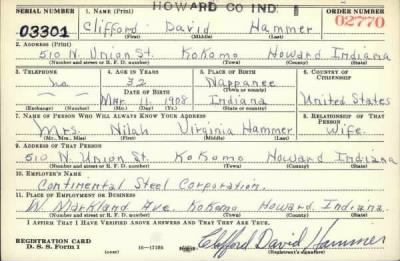 HOWARD CO IND.
SERIAL NUMBER 1. NAME (Print) ORDER NUMBER
03301 Clifford David Hammer 02770
(First) (Middle) (Last)
2. ADDRESS (Print)
510 N. Union St. Kokomo Howard Indiana
(Number and street or R. F. D. number) (Town) (County) (State)
3. TELEPHONE 4. AGE IN YEARS 5. PLACE OF BIRTH 6. COUNTRY OF CITIZENSHIP
no 32 Nappanee
(Town or county)
DATE OF BIRTH
Mar. 11, 1908 Indiana United States
(Exchange) (Number) (Mo.) (Day) (Yr.) (State or country)
7. NAME OF PERSON WHO WILL ALWAYS KNOW YOUR ADDRESS 8. RELATIONSHIP OF THAT PERSON
Mrs. Nilah Virginia Hammer Wife.
(Mr., Mrs., Miss) (First) (Middle) (Last)
9. ADDRESS OF THAT PERSON
510 N. Union St. Kokomo Howard Indiana
(Number and street or R. F. D. number) (Town) (County) (State)
10. EMPLOYER'S NAME
Continental Steel Corporation.
11. PLACE OF EMPLOYMENT OR BUSINESS
W. Markland Ave. Kokomo Howard, Indiana.
(Number and street or R. F. D. number) (Town) (County) (State)
I AFFIRM THAT I HAVE VERIFIED ABOVE ANSWERS AND THAT THEY ARE TRUE.
REGISTRATION CARD
D. S. S. FORM 1 16—17105 Clifford David Hammer
(Registrant's signature)